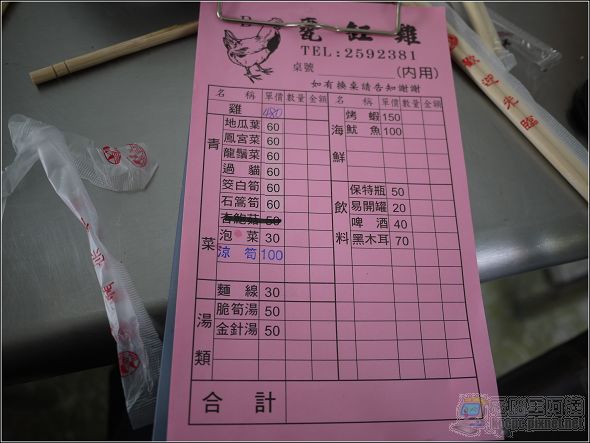 甕缸雞
TEL:2592381
桌號 (内用)
如有換桌請告知謝謝
名稱 單價 數量 金額 名稱 單價 數量 金額
雞 480 烤蝦 150
地瓜葉 60 魷魚 100
鳳宮菜 60
龍鬚菜 60
過貓 60
筊白筍 60 保特瓶 50
石篙筍 60 易開罐 20
杏鮑菇 50 啤酒 40
泡菜 30 黑木耳 70
涼筍 100
麵線 30
脆筍湯 50
金針湯 50
青菜
海鮮
飲料
湯類
合計
歡迎光臨